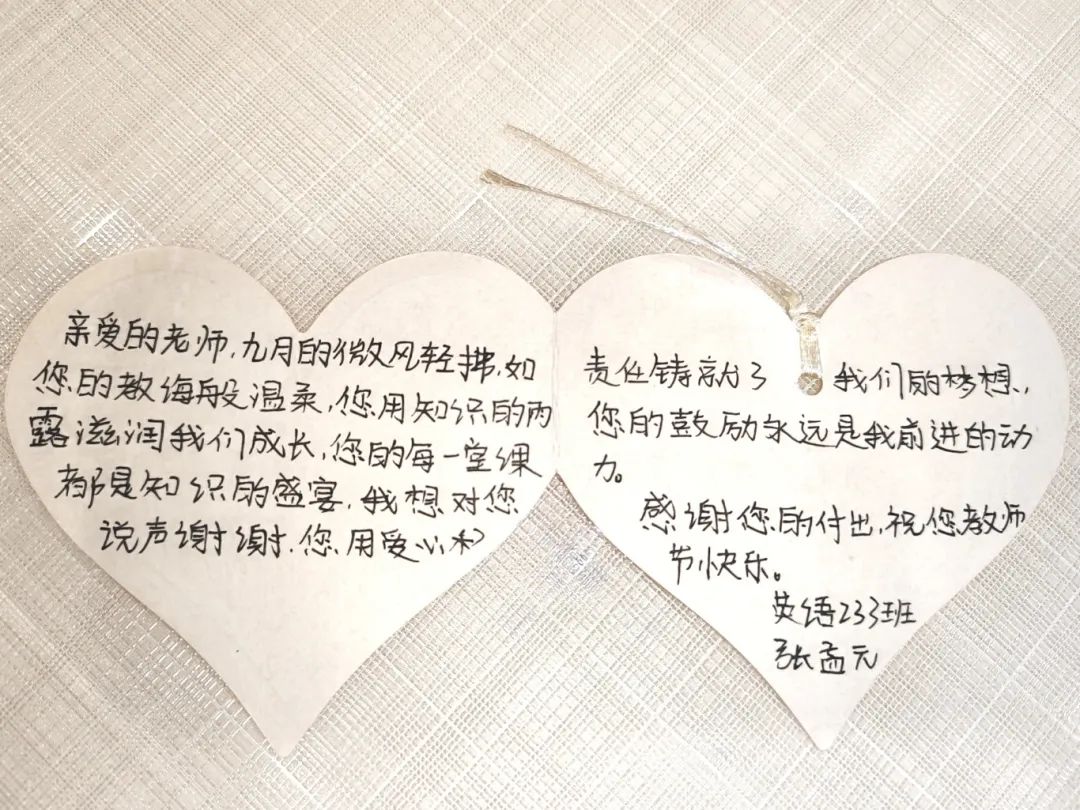 亲爱的老师,九月的微风轻拂,如
您的教诲般温柔,您用知识的雨
露滋润我们成长,您的每一堂课
都是知识的盛宴,我想对您
说声谢谢,您用爱心和
责任铸就了 我们的梦想,
您的鼓励永远是我前进的动
力。
感谢您的付出,祝您教师
节快乐。
英语233班
张孟元